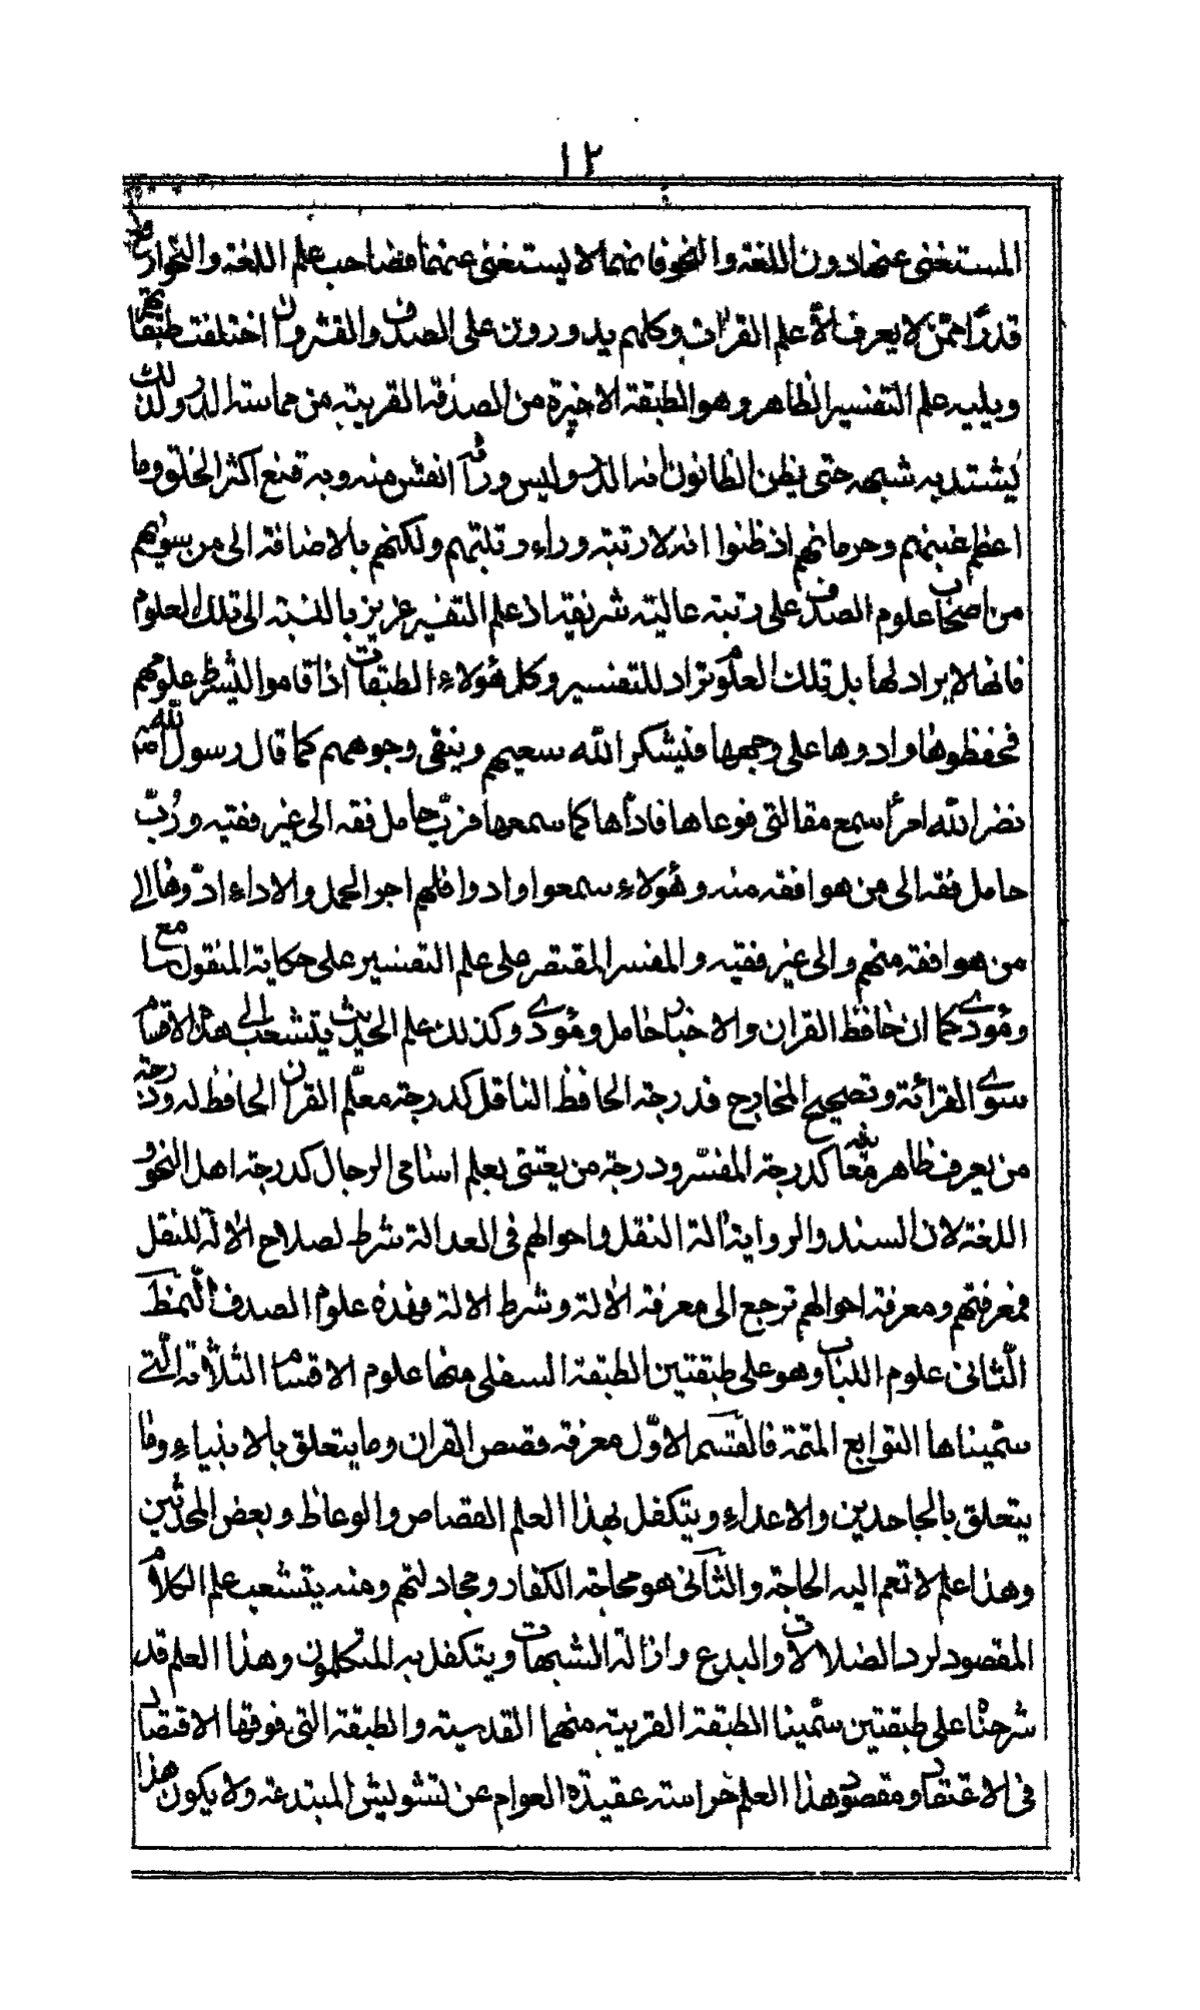 ١٢
المستغنى عنها دون اللغة والنحو فانهما لا يستغنى عنهما فصاحب علم اللغة والنحو ارفع
قدرًا ممّن لا يعرف الّا علم القرائ وكلهم يدورون على الصدف والقشر وان اختلفت طبقاتهم
ويليه علم التفسير الظاهر وهو الطبقة الاخيرة من الصدفة القريبة من مماسة الدر ولذلك
يشتد به شبهه حتى يظن الظانون انه الدر وليس ورائه انفس منه وبه قنع اكثر الخلق وما
اعظم غبنهم وحرمانهم اذ ظنوا انه لا رتبة وراء رتبتهم ولكنهم بالاضافة الى من سويهم
من اصحاب علوم الصدف على رتبة عالية شريفة اذ علم التفسير عزيز بالنسبة الى تلك العلوم
فانها لا يراد لها بل تلك العلوم تراد للتفسير وكل هؤلاء الطبقات اذا قاموا للشرط علومهم
فحفظوها وادوها على وجهها فيشكر الله سعيهم وينقى وجوههم كما قال رسول الله ص
نضر الله امرأ سمع مقالتى فوعاها فادّاها كما سمعها فربّ حامل فقه الى غير فقيه ورُبّ
حامل فقه الى من هو افقه منه وهؤلاء سمعوا وادوا فلهم اجر الحمل والاداء ادّوها الى
من هو افقه منهم والى غير فقيه والمفسر المقتصر على علم التفسير على حكاية المنقول سامع
ومؤدى كما ان حافظ القران والاخبار حامل ومؤدى وكذلك علم الحديث يتشعب الى هذه الاقسام
سوى القرائة وتصحيح المخارج فدرجة الحافظ الناقل كدرجة معلّم القران الحافظ له ودرجة
من يعرف ظاهر معانيه كدرجة المفسّر ودرجة من يعتنى بعلم اسامى الرجال كدرجة اهل النحو و
اللغة لان السند والرواية الة النقل واحوالهم فى العدالة شرط لصلاح الالة للنقل
فمعرفتهم ومعرفة احوالهم ترجع الى معرفة الالة وشرط الالة فهذه علوم الصدف النّمط
الثّانى علوم اللباب وهو على طبقتين الطبقة السفلى منها علوم الاقسام الثلاثة الّتى
سمّيناها التوابع المتمّة فالقسم الاوّل معرفة قصص القران وما يتعلق بالانبياء وما
يتعلق بالجاحدين والاعداء ويتكفل بهذا العلم القصاص والوعاظ وبعض المحدّثين
وهذا علم لا تعم اليه الحاجة والثّانى هو محاجة الكفار ومجادلتهم ومنه يتشعب علم الكلام
المقصود لرد الضلالات والبدع وازالة الشبهات ويتكفل به المتكلمون وهذا العلم قد
شرحناه على طبقتين سمّينا الطبقة القريبة منهما القدسية والطبقة التى فوقها الاقتصاد
فى الاعتقاد ومقصود هذا العلم حراسة عقيدة العوام عن تشويش المبتدعة ولا يكون هذا